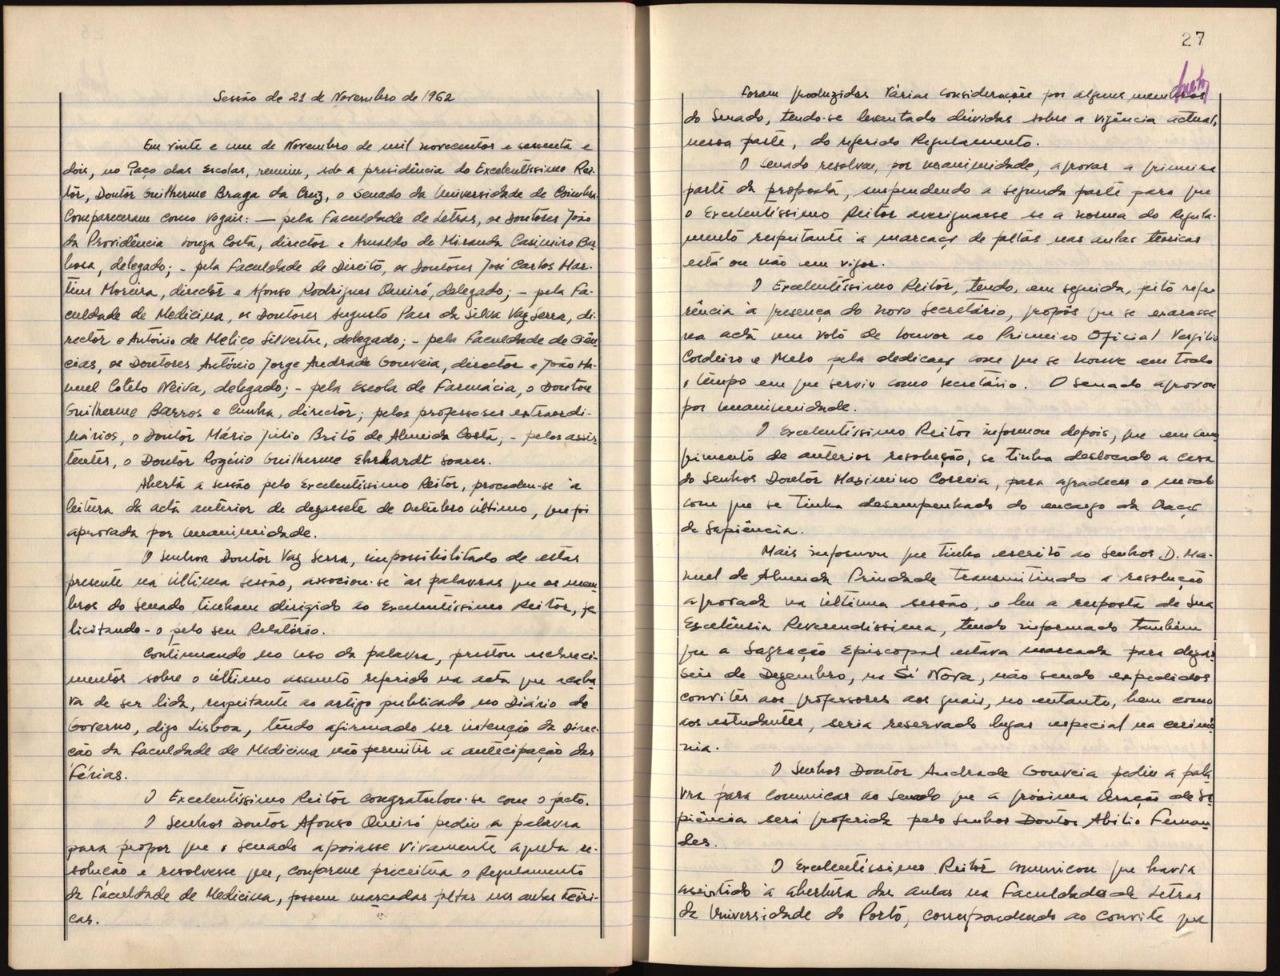 Sessão de 21 de Novembro de 1962
Em vinte e um de Novembro de mil novecentos e sessenta e
dois, no Paço das Escolas, reuniu, sob a presidência do Excelentíssimo Rei-
tor, Doutor Guilherme Braga da Cruz, o Senado da Universidade de Coimbra.
Compareceram como vogais: — pela Faculdade de Letras, os Doutores João
da Providência Sousa Costa, director e Arnaldo de Miranda Casimiro Bar-
bosa, delegado; - pela Faculdade de Direito, os Doutores José Carlos Mar-
tins Moreira, director e Afonso Rodrigues Queiró, delegado; - pela Fa-
culdade de Medicina, os Doutores Augusto Pais da Silva Vaz Serra, di-
rector e António de Melico Silvestre, delegado; - pela Faculdade de Ciên-
cias, os Doutores António Jorge Andrade Gouveia, director e João Ma-
nuel Cotelo Neiva, delegado; - pela Escola de Farmácia, o Doutor
Guilherme Barros e Cunha, director; pelos professores extraordi-
nários, o Doutor Mário Júlio Brito de Almeida Costa, - pelos assis-
tentes, o Doutor Rogério Guilherme Ehrhardt Soares.
Aberta a sessão pelo Excelentíssimo Reitor, procedeu-se à
leitura da acta anterior de dezassete de Outubro último, que foi
aprovada por unanimidade.
O Senhor Doutor Vaz Serra, impossibilitado de estar
presente na última sessão, associou-se às palavras que os mem-
bros do Senado tinham dirigido ao Excelentíssimo Reitor, fe-
licitando-o pelo seu Relatório.
Continuando no uso da palavra, prestou esclareci-
mentos sobre o último assunto referido na acta que acaba-
va de ser lida, respeitante ao artigo publicado no Diário do
Governo, digo Lisboa, tendo afirmado ser intenção da Direc-
ção da Faculdade de Medicina não permitir a antecipação das
férias.
O Excelentíssimo Reitor congratulou-se com o facto.
O Senhor Doutor Afonso Queiró pediu a palavra
para propor que o Senado apoiasse vivamente aquela re-
solução e resolvesse que, conforme preceitua o Regulamento
da Faculdade de Medicina, fossem marcadas faltas nas aulas teóri-
cas.
27
Foram produzidas várias considerações por alguns membros
do Senado, tendo-se levantado dúvidas sobre a vigência actual,
nessa parte, do referido Regulamento.
O Senado resolveu, por unanimidade, aprovar a primeira
parte da proposta, suspendendo a segunda parte para que
o Excelentíssimo Reitor averiguasse se a norma do Regula-
mento respeitante à marcação de faltas nas aulas teóricas
está ou não em vigor.
O Excelentíssimo Reitor, tendo, em seguida, feito refe-
rência à presença do novo Secretário, propôs que se exarasse
na acta um voto de louvor ao Primeiro Oficial Vergílio
Cordeiro e Melo pela dedicação com que se houve em todo
o tempo em que serviu como secretário. O Senado aprovou
por unanimidade.
O Excelentíssimo Reitor informou depois, que em cum-
primento de anterior resolução, se tinha deslocado a casa
do Senhor Doutor Maximino Correia, para agradecer o modo
com que se tinha desempenhado do encargo da Oração
de Sapiência.
Mais informou que tinha escrito ao Senhor D. Ma-
nuel de Almeida Trindade transmitindo a resolução
aprovada na última sessão, e leu a resposta de Sua
Excelência Reverendíssima, tendo informado também
que a Sagração Episcopal estava marcada para dezas-
seis de Dezembro, na Sé Nova, não sendo expedidos
convites aos professores aos quais, no entanto, bem como
aos estudantes, seria reservado lugar especial na cerimó-
nia.
O Senhor Doutor Andrade Gouveia pediu a pala-
vra para comunicar ao Senado que a próxima Oração de Sa-
piência será proferida pelo Senhor Doutor Abílio Fernan-
des.
O Excelentíssimo Reitor comunicou que havia
assistido à abertura das aulas na Faculdade de Letras
da Universidade do Porto, correspondendo ao convite que